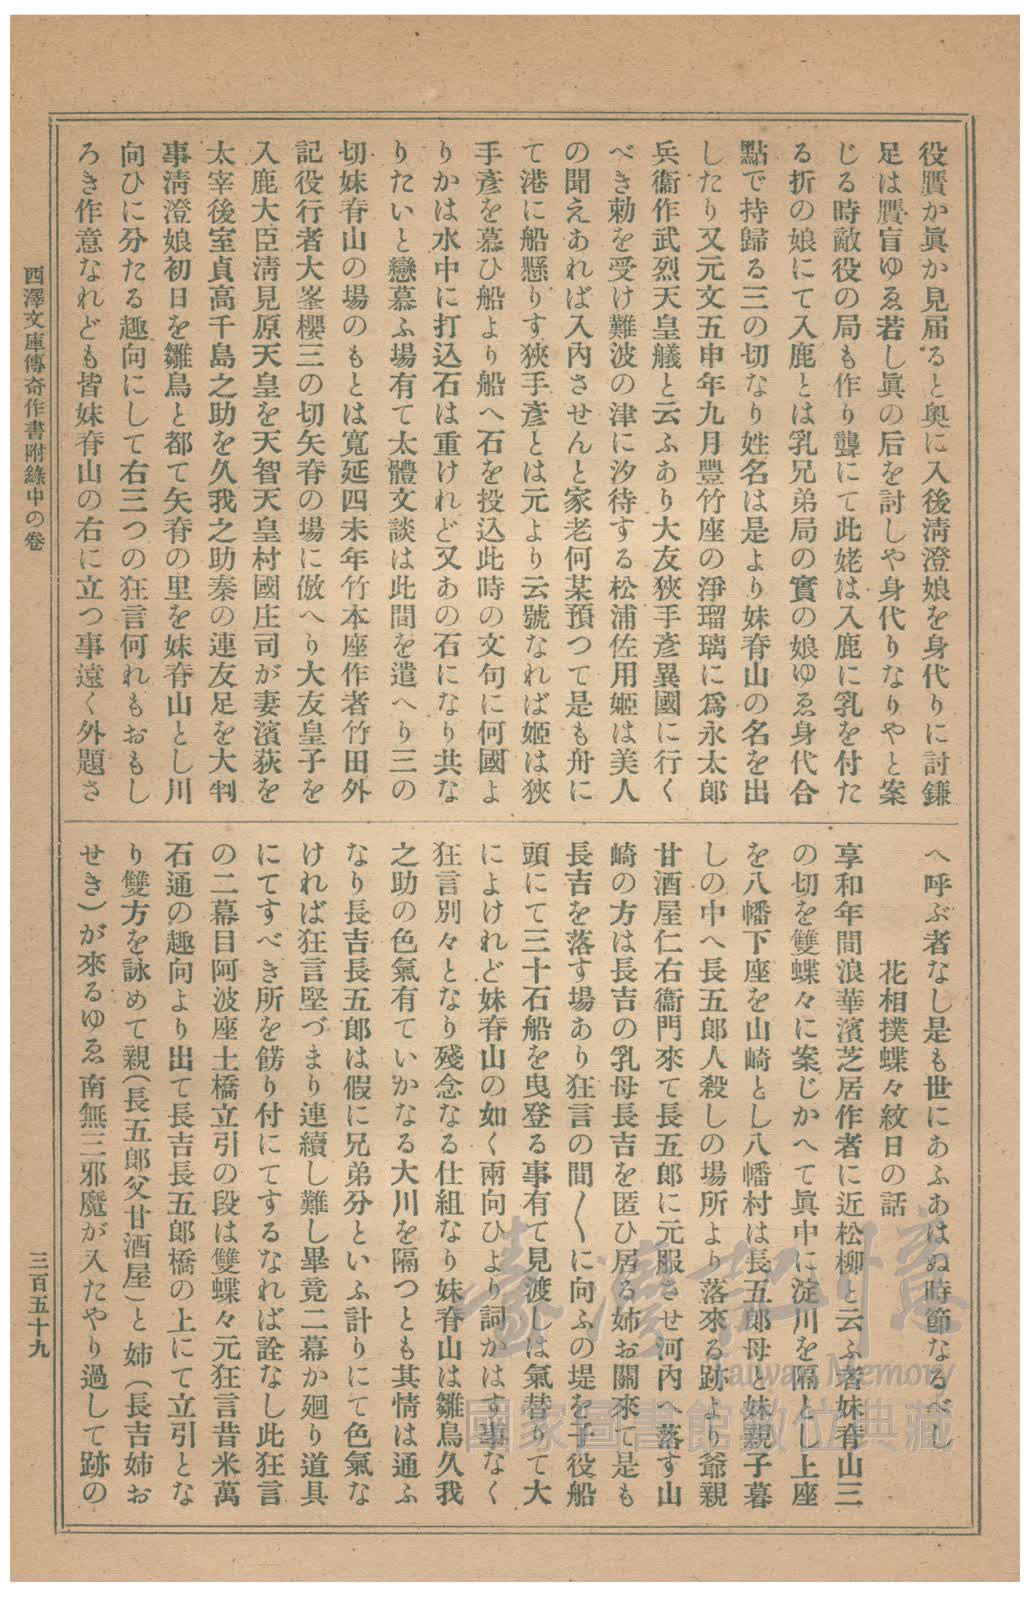 役贋か眞か見届ると奥に入後淸澄娘を身代りに討鎌
足は贋盲ゆゑ若し眞の后を討しや身代りなりやと案
じる時敵役の局も作り聾にて此姥は入鹿に乳を付た
る折の娘にて入鹿とは乳兄弟局の實の娘ゆゑ身代合
點で持歸る三の切なり姓名は是より妹脊山の名を出
したり又元文五申年九月豐竹座の淨瑠璃に爲永太郎
兵衞作武烈天皇艤と云ふあり大友狹手彥異國に行く
べき勅を受け難波の津に汐待する松浦佐用姬は美人
の聞えあれば入內させんと家老何某預つて是も舟に
て港に船懸りす狹手彥とは元より云號なれば姬は狹
手彥を慕ひ船より船へ石を投込此時の文句に何國よ
りかは水中に打込石は重けれど又あの石になり共な
りたいと戀慕ふ場有て太體文談は此間を遣へり三の
切妹脊山の場のもとは寬延四未年竹本座作者竹田外
記役行者大峯櫻三の切矢脊の場に倣へり大友皇子を
入鹿大臣淸見原天皇を天智天皇村國庄司が妻濱荻を
太宰後室貞高千島之助を久我之助秦の連友足を大判
事淸澄娘初日を雛鳥と都て矢脊の里を妹脊山とし川
向ひに分たる趣向にして右三つの狂言何れもおもし
ろき作意なれども皆妹脊山の右に立つ事遠く外題さ
へ呼ぶ者なし是も世にあふあはぬ時節なるべし
花相撲蝶々紋日の話
享和年間浪華濱芝居作者に近松柳と云ふ者妹脊山三
の切を雙蝶々に案じかへて眞中に淀川を隔とし上座
を八幡下座を山崎とし八幡村は長五郎母と妹親子暮
しの中へ長五郎人殺しの場所より落來る跡より爺親
甘酒屋仁右衞門來て長五郎に元服させ河內へ落す山
崎の方は長吉の乳母長吉を匿ひ居る姉お關來て是も
長吉を落す場あり狂言の間〱に向ふの堤を子役船
頭にて三十石船を曳登る事有て見渡しは氣替りて大
によけれど妹脊山の如く兩向ひより詞かはす事なく
狂言別々となり殘念なる仕組なり妹脊山は雛鳥久我
之助の色氣有ていかなる大川を隔つとも其情は通ふ
なり長吉長五郎は假に兄弟分といふ計りにて色氣な
ければ狂言堅づまり連續し難し畢竟二幕か廻り道具
にてすべき所を餝り付にてするなれば詮なし此狂言
の二幕目阿波座土橋立引の段は雙蝶々元狂言昔米萬
石通の趣向より出て長吉長五郎橋の上にて立引とな
り雙方を詠めて親(長五郎父甘酒屋)と姉(長吉姉お
せき)が來るゆゑ南無三邪魔が入たやり過して跡の
西澤文庫傳奇作書附錄中の卷
三百五十九
臺灣記憶
Taiwan Memory
國家圖書館數位典藏